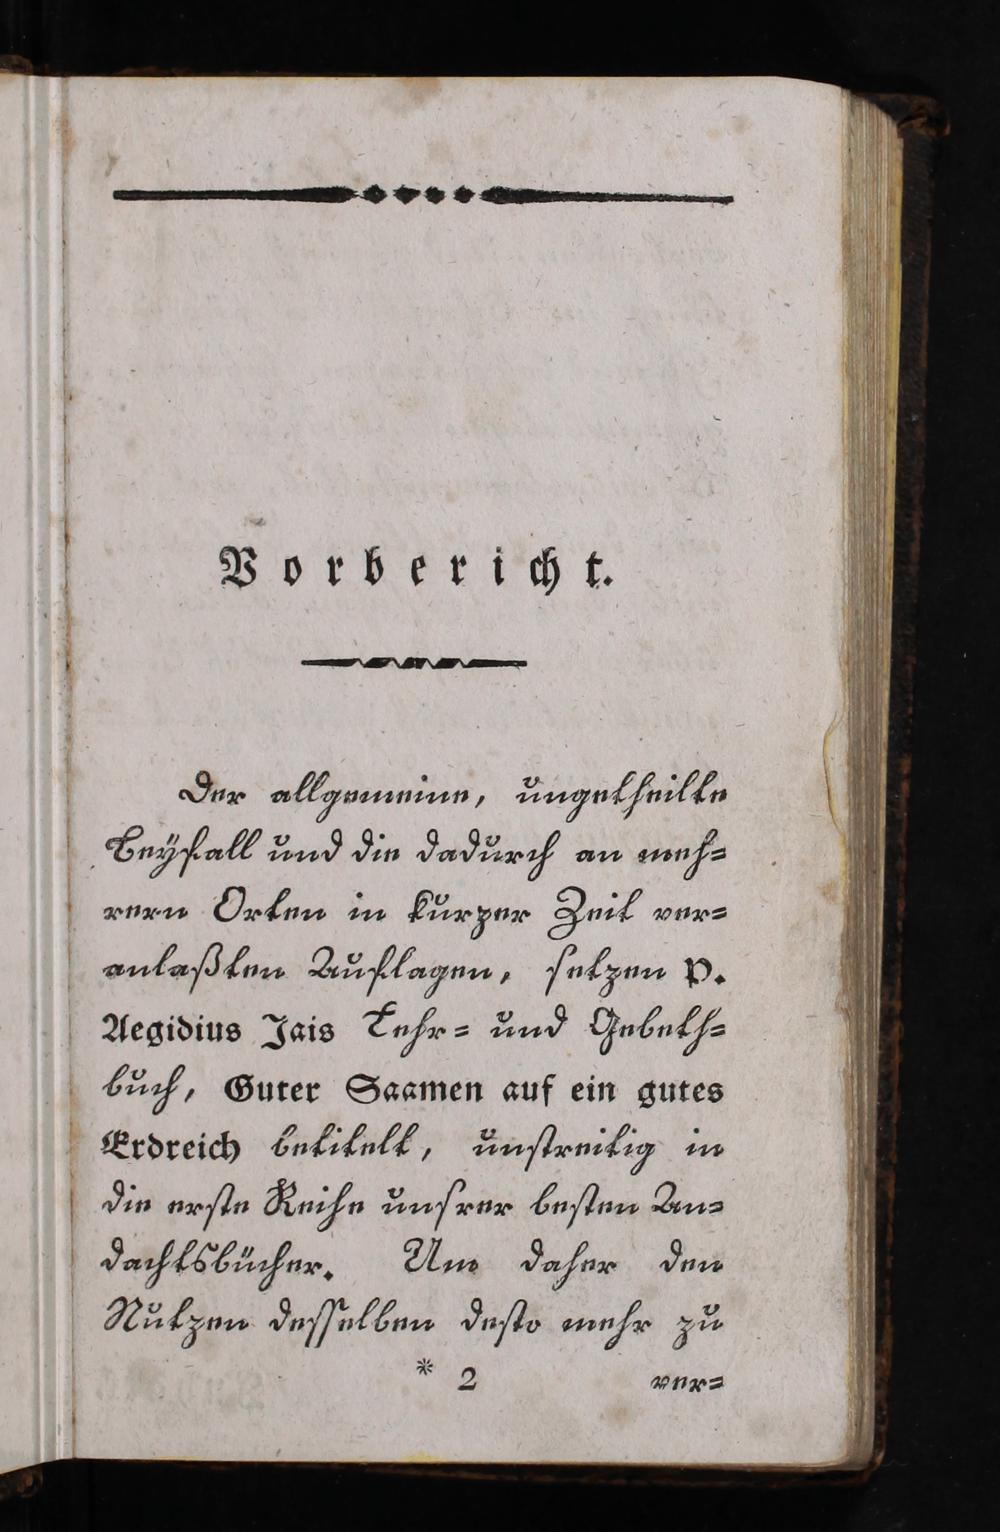 Vorbericht.
Der allgemeine, ungetheilte
Beyfall und die dadurch an meh=
rern Orten in kurzer Zeit ver=
anlaßten Auflagen, setzen P.
Aegidius Jais Lehr= und Gebeth=
buch, Guter Saamen auf ein gutes
Erdreich betitelt, unstreitig in
die erste Reihe unsrer besten An=
dachtsbücher. Um daher den
Nutzen desselben desto mehr zu
* 2 ver=